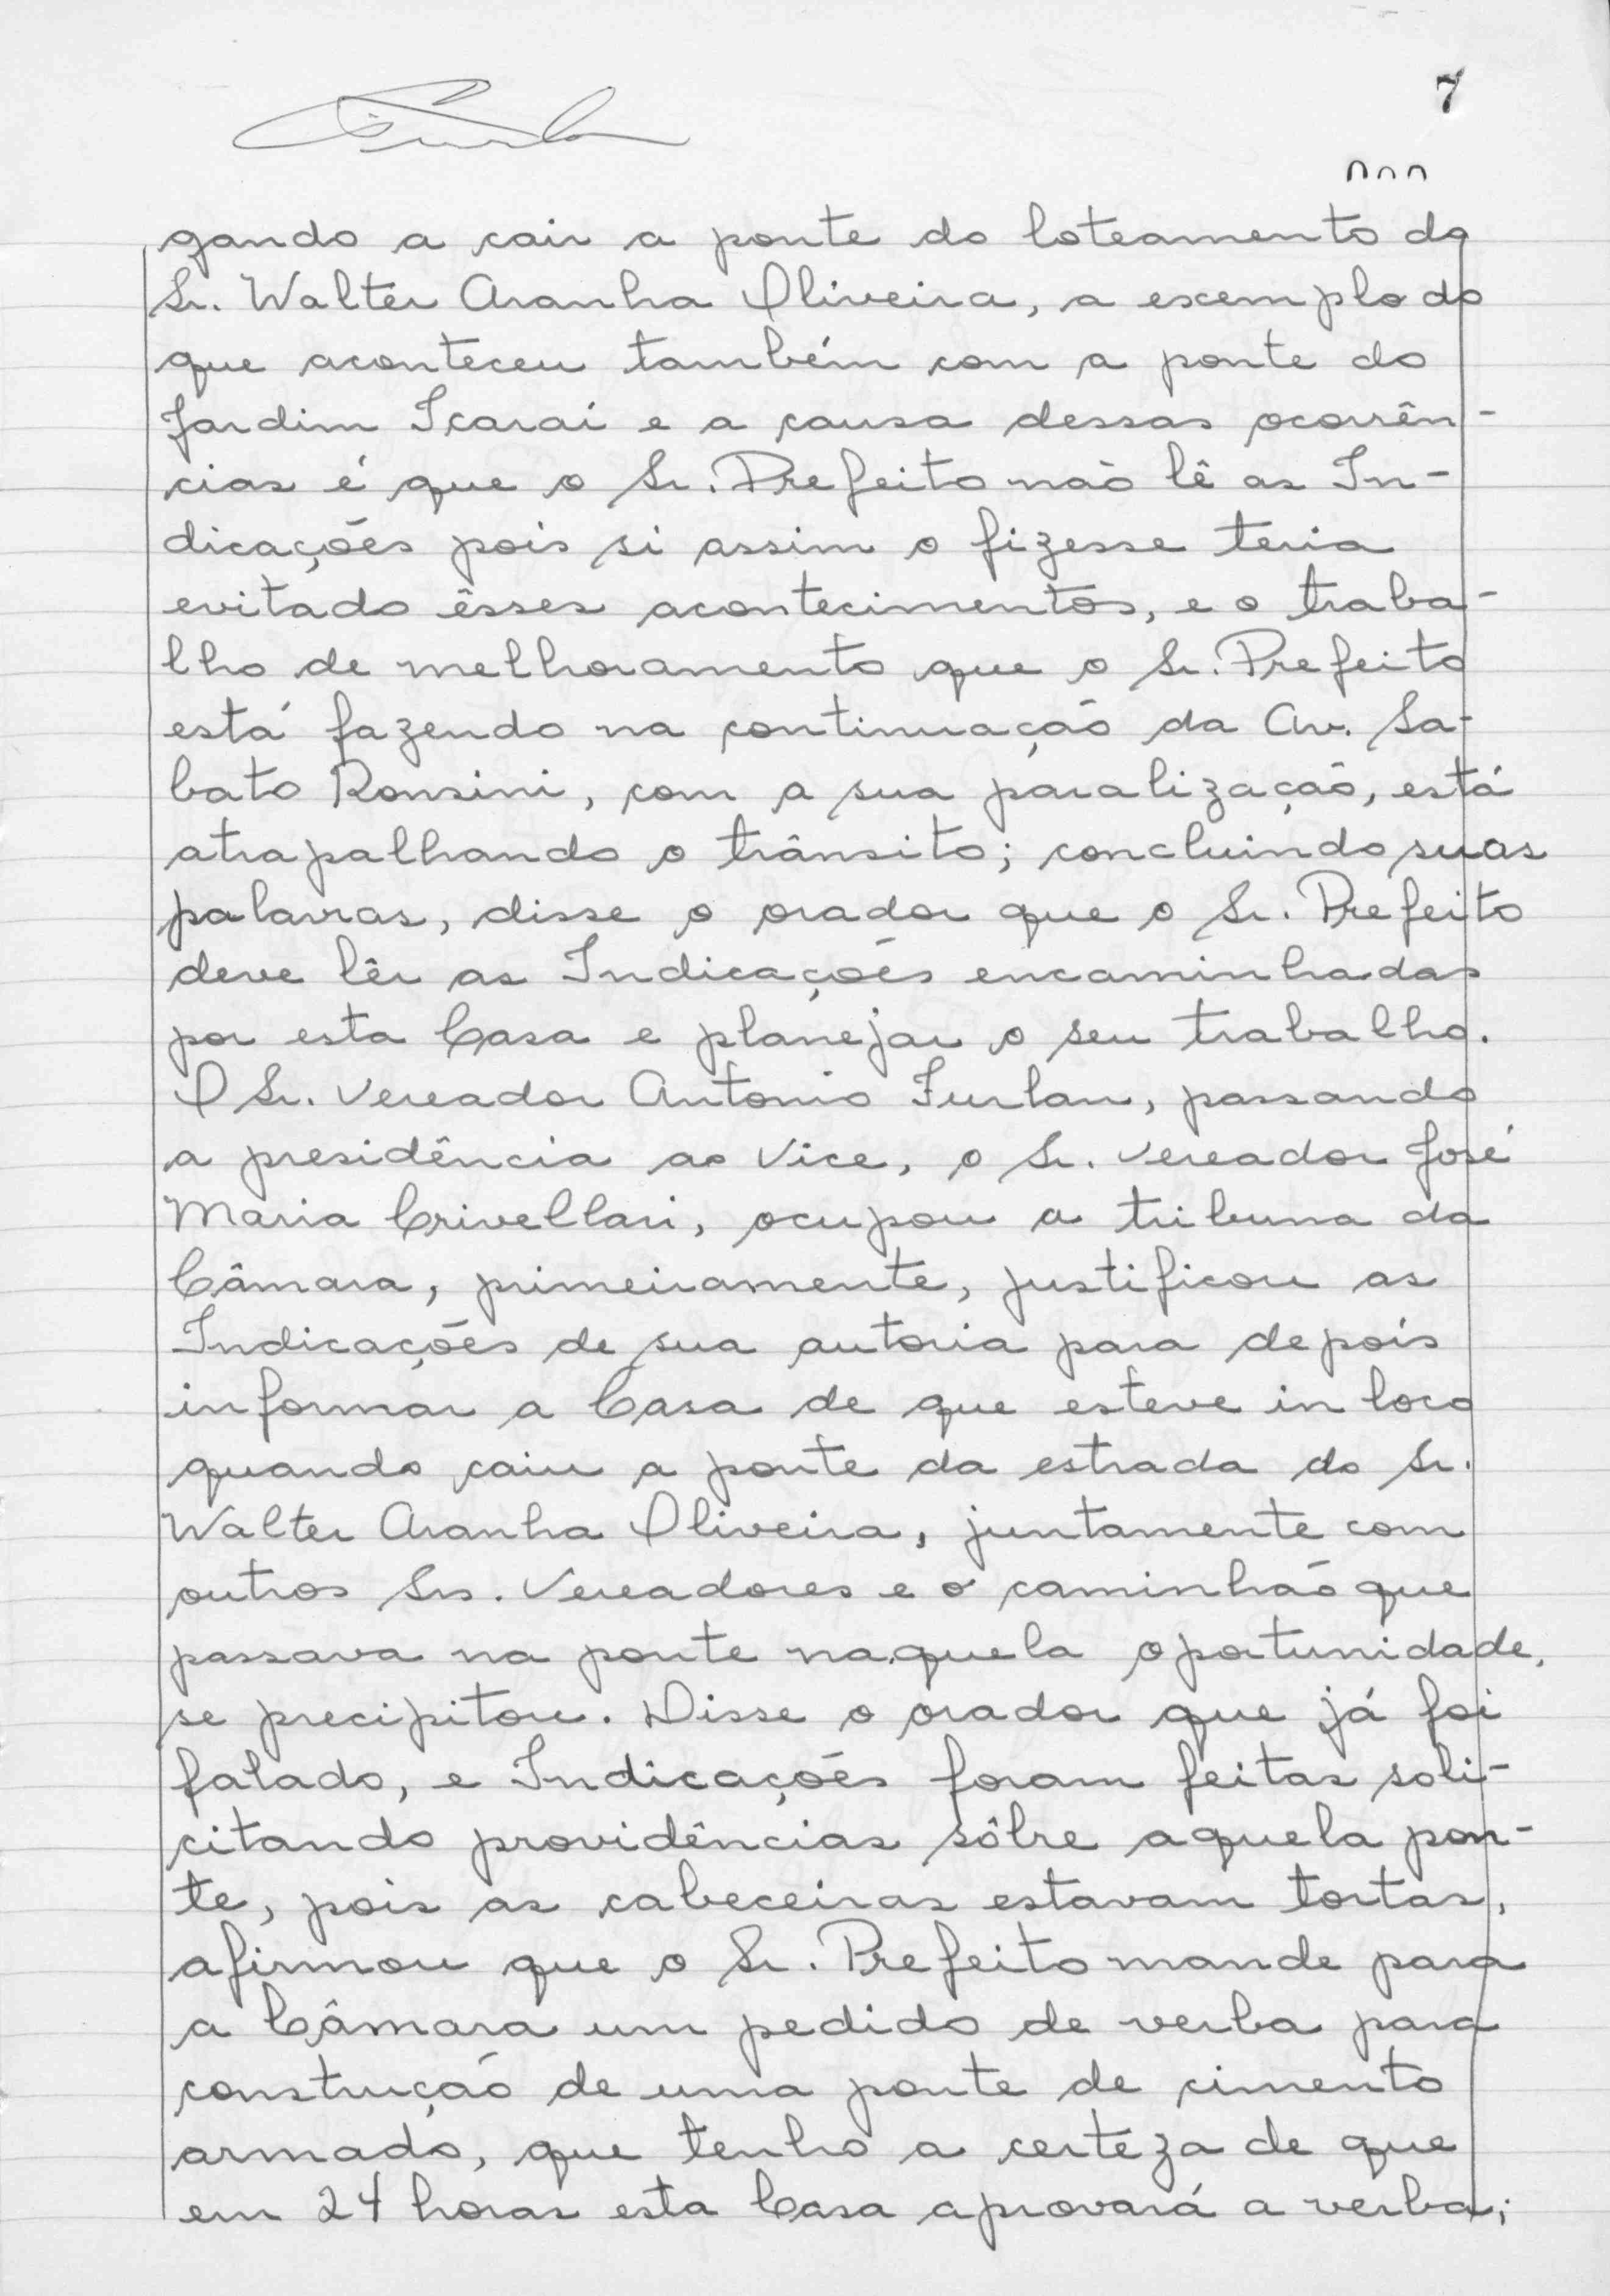 7
gando a cair a ponte do loteamento do
Sr. Walter Aranha Oliveira, a exemplo do
que aconteceu também com a ponte do
Jardim Icaraí e a causa dessas ocorrên-
cias é que o Sr. Prefeito não lê as In-
dicações pois si assim o fizesse teria
evitado êsses acontecimentos, e o traba-
lho de melhoramento que o Sr. Prefeito
está fazendo na continuação da Av. Sa-
bato Ronsini, com a sua paralização, está
atrapalhando o trânsito; concluindo suas
palavras, disse o orador que o Sr. Prefeito
deve lêr as Indicações encaminhadas
por esta Casa e planejar o seu trabalho.
O Sr. Vereador Antonio Furlan, passando
a presidência ao Vice, o Sr. Vereador José
Maria Crivellari, ocupou a tribuna da
Câmara, primeiramente, justificou as
Indicações de sua autoria para depois
informar a Casa de que esteve in loco
quando caiu a ponte da estrada do Sr.
Walter Aranha Oliveira, juntamente com
outros Srs. Vereadores e o caminhão que
passava na ponte naquela oportunidade,
se precipitou. Disse o orador que já foi
falado, e Indicações foram feitas soli-
citando providências sôbre aquela pon-
te, pois as cabeceiras estavam tortas,
afirmou que o Sr. Prefeito mande para
a Câmara um pedido de verba para
construção de uma ponte de cimento
armado, que tenho a certeza de que
em 24 horas esta Casa aprovará a verba;